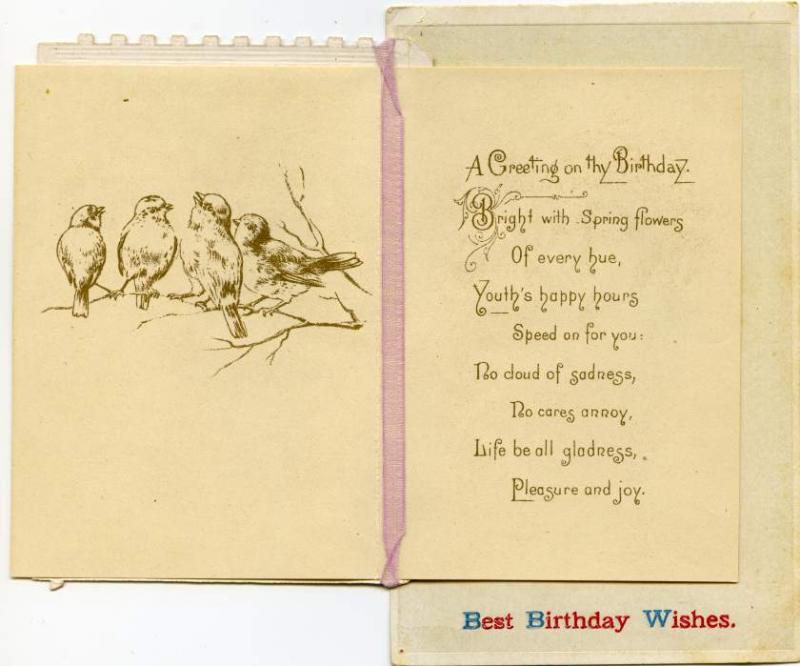 A Greeting on thy Birthday.
Bright with Spring flowers
Of every hue,
Youth's happy hours
Speed on for you:
No cloud of sadness,
No cares annoy,
Life be all gladness,
Pleasure and joy.
Best Birthday Wishes.